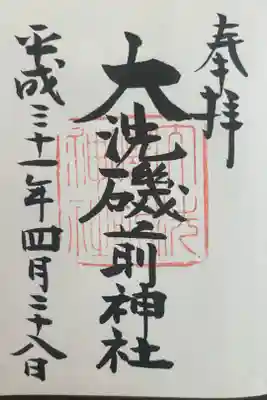 奉拝
大洗磯前神社
平成三十一年四月二十八日